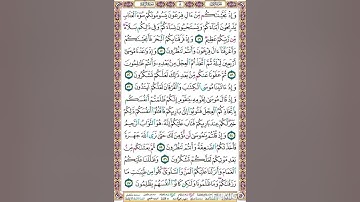 وَإِذْ نَجَّيْنَٰكُم مِّنْ ءَالِ فِرْعَوْنَ يَسُومُونَكُمْ سُوٓءَ ٱلْعَذَابِ
يُذَبِّحُونَ أَبْنَآءَكُمْ وَيَسْتَحْيُونَ نِسَآءَكُمْ وَفِى ذَٰلِكُم بَلَآءٌ
مِّن رَّبِّكُمْ عَظِيمٌ وَإِذْ فَرَقْنَا بِكُمُ ٱلْبَحْرَ فَأَنجَيْنَٰكُمْ
وَأَغْرَقْنَآ ءَالَ فِرْعَوْنَ وَأَنتُمْ تَنظُرُونَ وَإِذْ وَٰعَدْنَا مُوسَىٰٓ
أَرْبَعِينَ لَيْلَةً ثُمَّ ٱتَّخَذْتُمُ ٱلْعِجْلَ مِنۢ بَعْدِهِۦ وَأَنتُمْ ظَٰلِمُونَ
ثُمَّ عَفَوْنَا عَنكُم مِّنۢ بَعْدِ ذَٰلِكَ لَعَلَّكُمْ تَشْكُرُونَ
وَإِذْ ءَاتَيْنَا مُوسَى ٱلْكِتَٰبَ وَٱلْفُرْقَانَ لَعَلَّكُمْ تَهْتَدُونَ
وَإِذْ قَالَ مُوسَىٰ لِقَوْمِهِۦ يَٰقَوْمِ إِنَّكُمْ ظَلَمْتُمْ أَنفُسَكُم
بِٱتِّخَاذِكُمُ ٱلْعِجْلَ فَتُوبُوٓا۟ إِلَىٰ بَارِئِكُمْ فَٱقْتُلُوٓا۟ أَنفُسَكُمْ ذَٰلِكُمْ
خَيْرٌ لَّكُمْ عِندَ بَارِئِكُمْ فَتَابَ عَلَيْكُمْ إِنَّهُۥ هُوَ ٱلتَّوَّابُ ٱلرَّحِيمُ
وَإِذْ قُلْتُمْ يَٰمُوسَىٰ لَن نُّؤْمِنَ لَكَ حَتَّىٰ نَرَى ٱللَّهَ جَهْرَةً
فَأَخَذَتْكُمُ ٱلصَّٰعِقَةُ وَأَنتُمْ تَنظُرُونَ ثُمَّ بَعَثْنَٰكُم مِّنۢ
بَعْدِ مَوْتِكُمْ لَعَلَّكُمْ تَشْكُرُونَ وَظَلَّلْنَا عَلَيْكُمُ
ٱلْغَمَامَ وَأَنزَلْنَا عَلَيْكُمُ ٱلْمَنَّ وَٱلسَّلْوَىٰ كُلُوا۟ مِن طَيِّبَٰتِ مَا
رَزَقْنَٰكُمْ وَمَا ظَلَمُونَا وَلَٰكِن كَانُوٓا۟ أَنفُسَهُمْ يَظْلِمُونَ